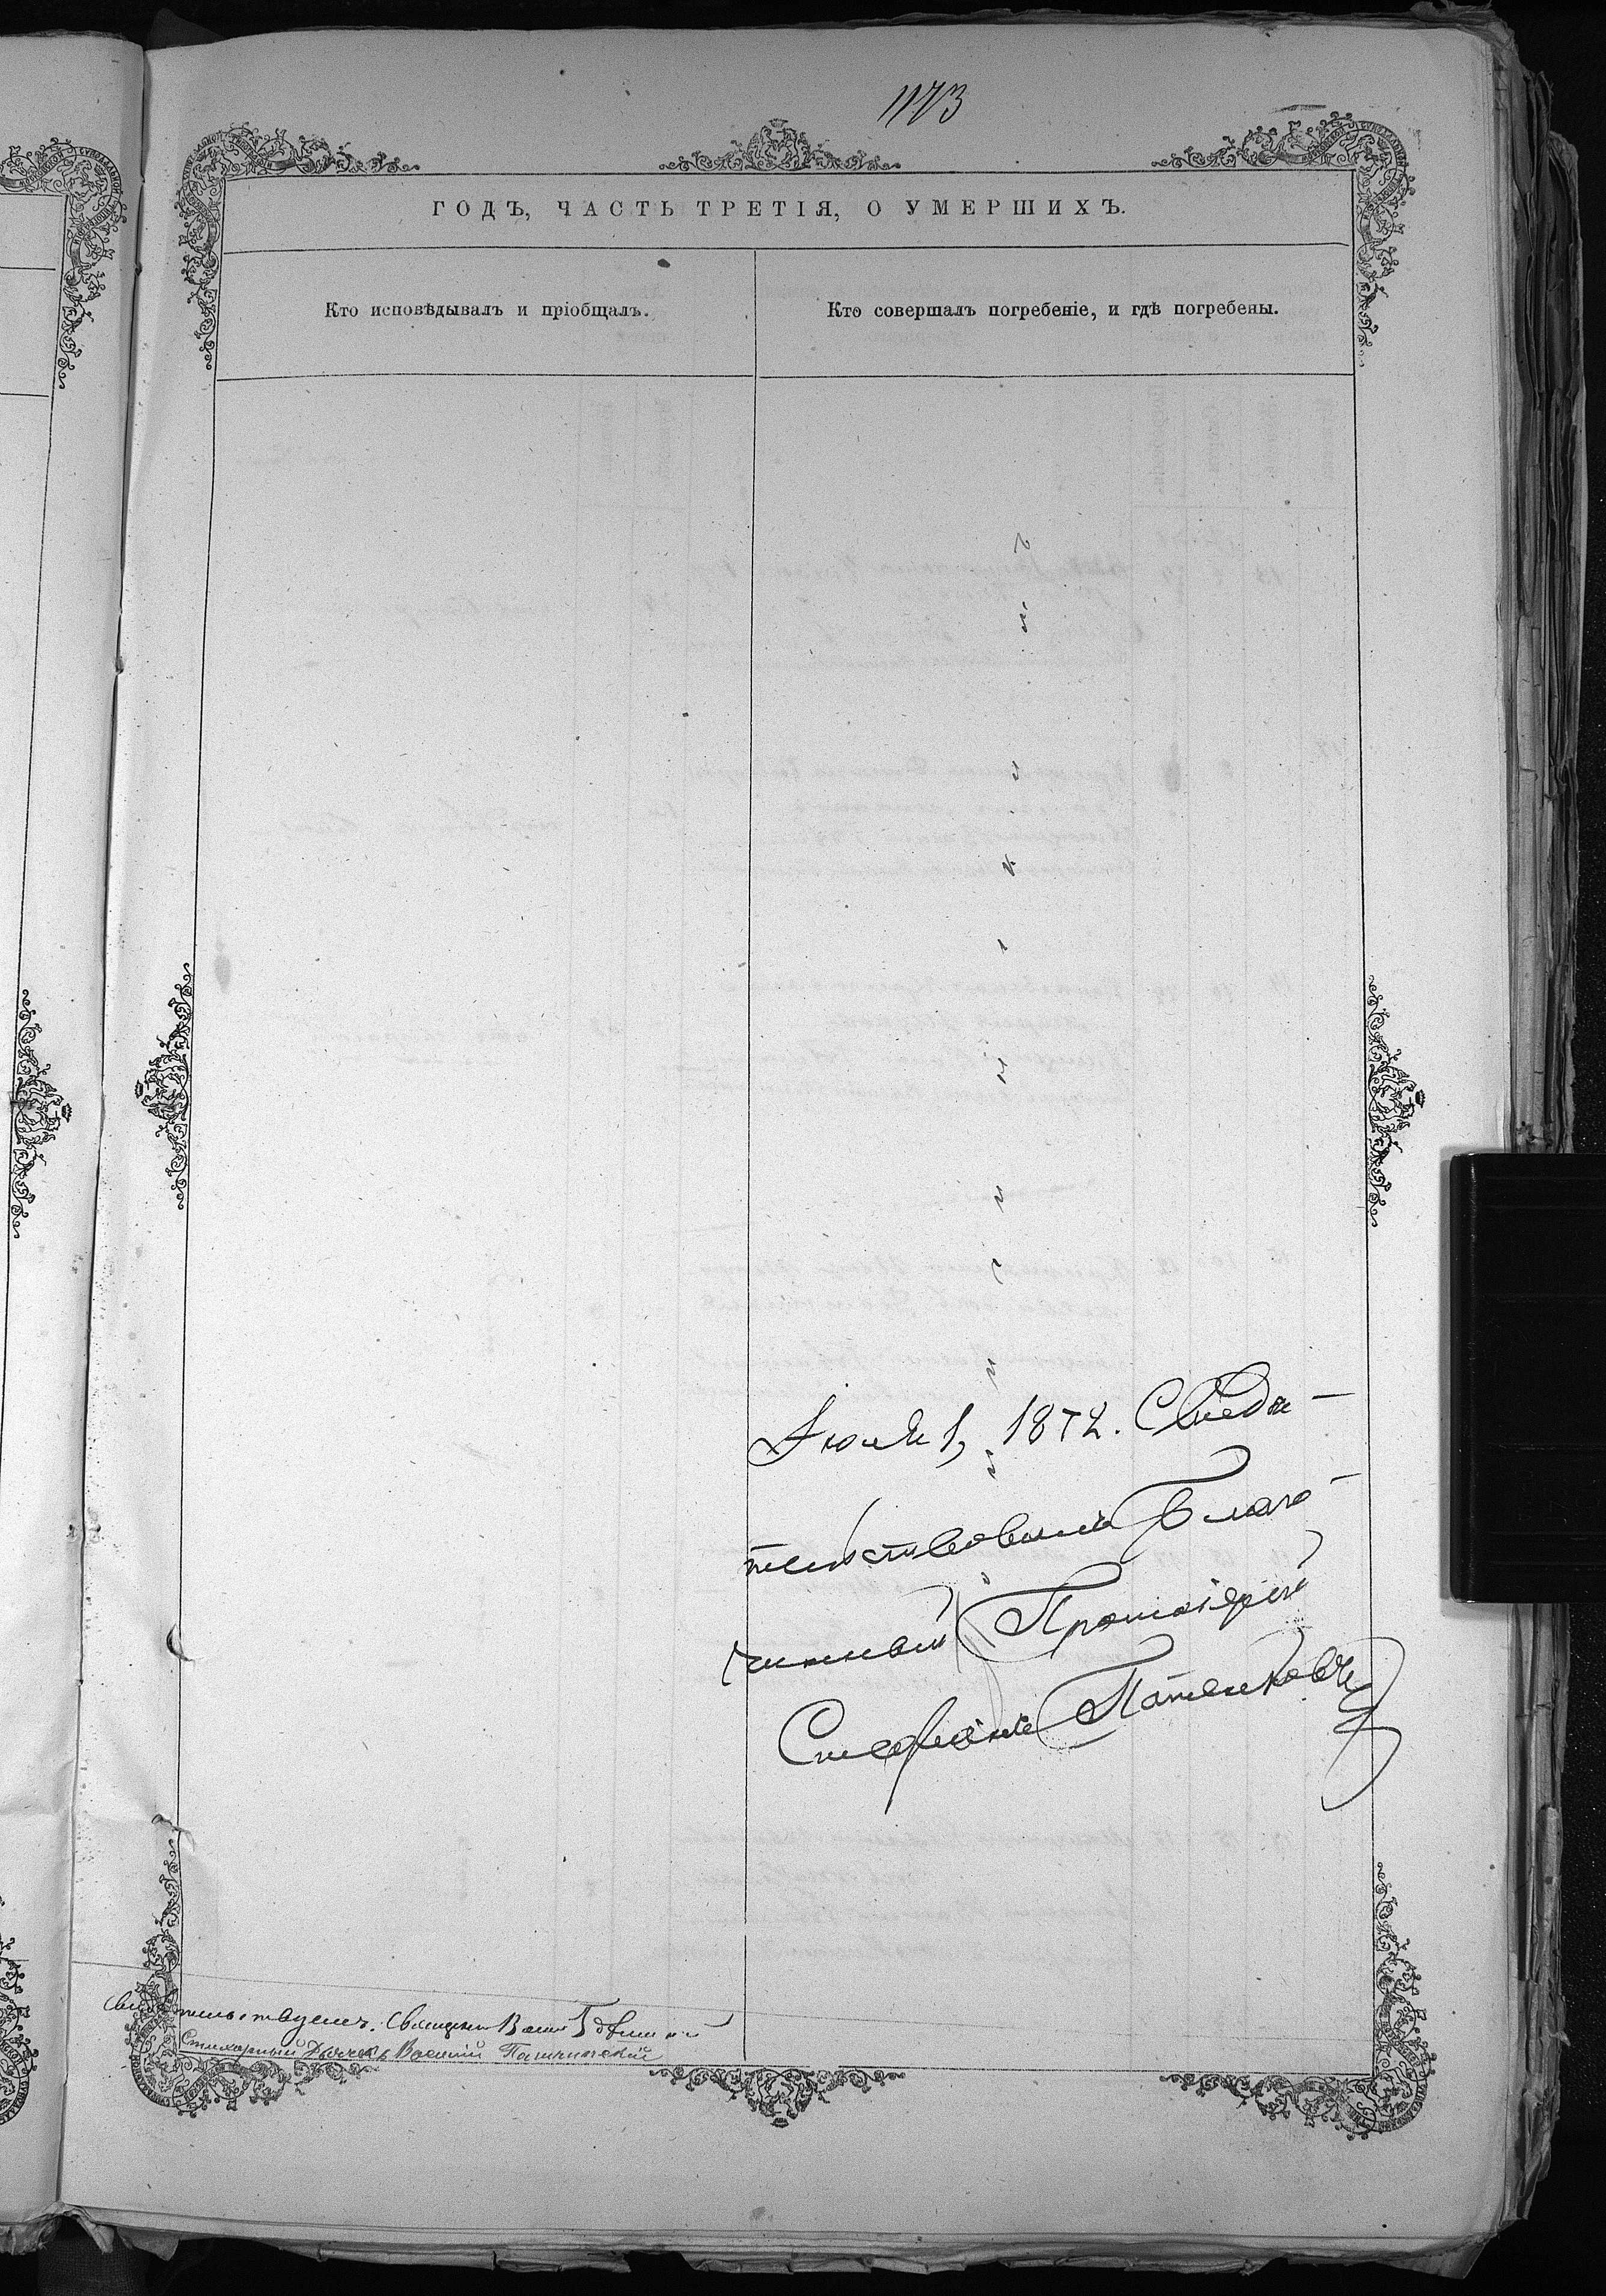 1173
ГОДЪ, ЧАСТЬ ТРЕТІЯ, О УМЕРШИХЪ.
Кто исповѣдывалъ и пріобщалъ.
Кто совершалъ погребеніе, и гдѣ погребены.
Іюля 1, 1872. Свидѣ-
тельствовалъ Благо-
чинный Протоіерей
Стефанъ
Свидѣтельствуемъ. Священникъ
Стихарный Дьячекъ Василій